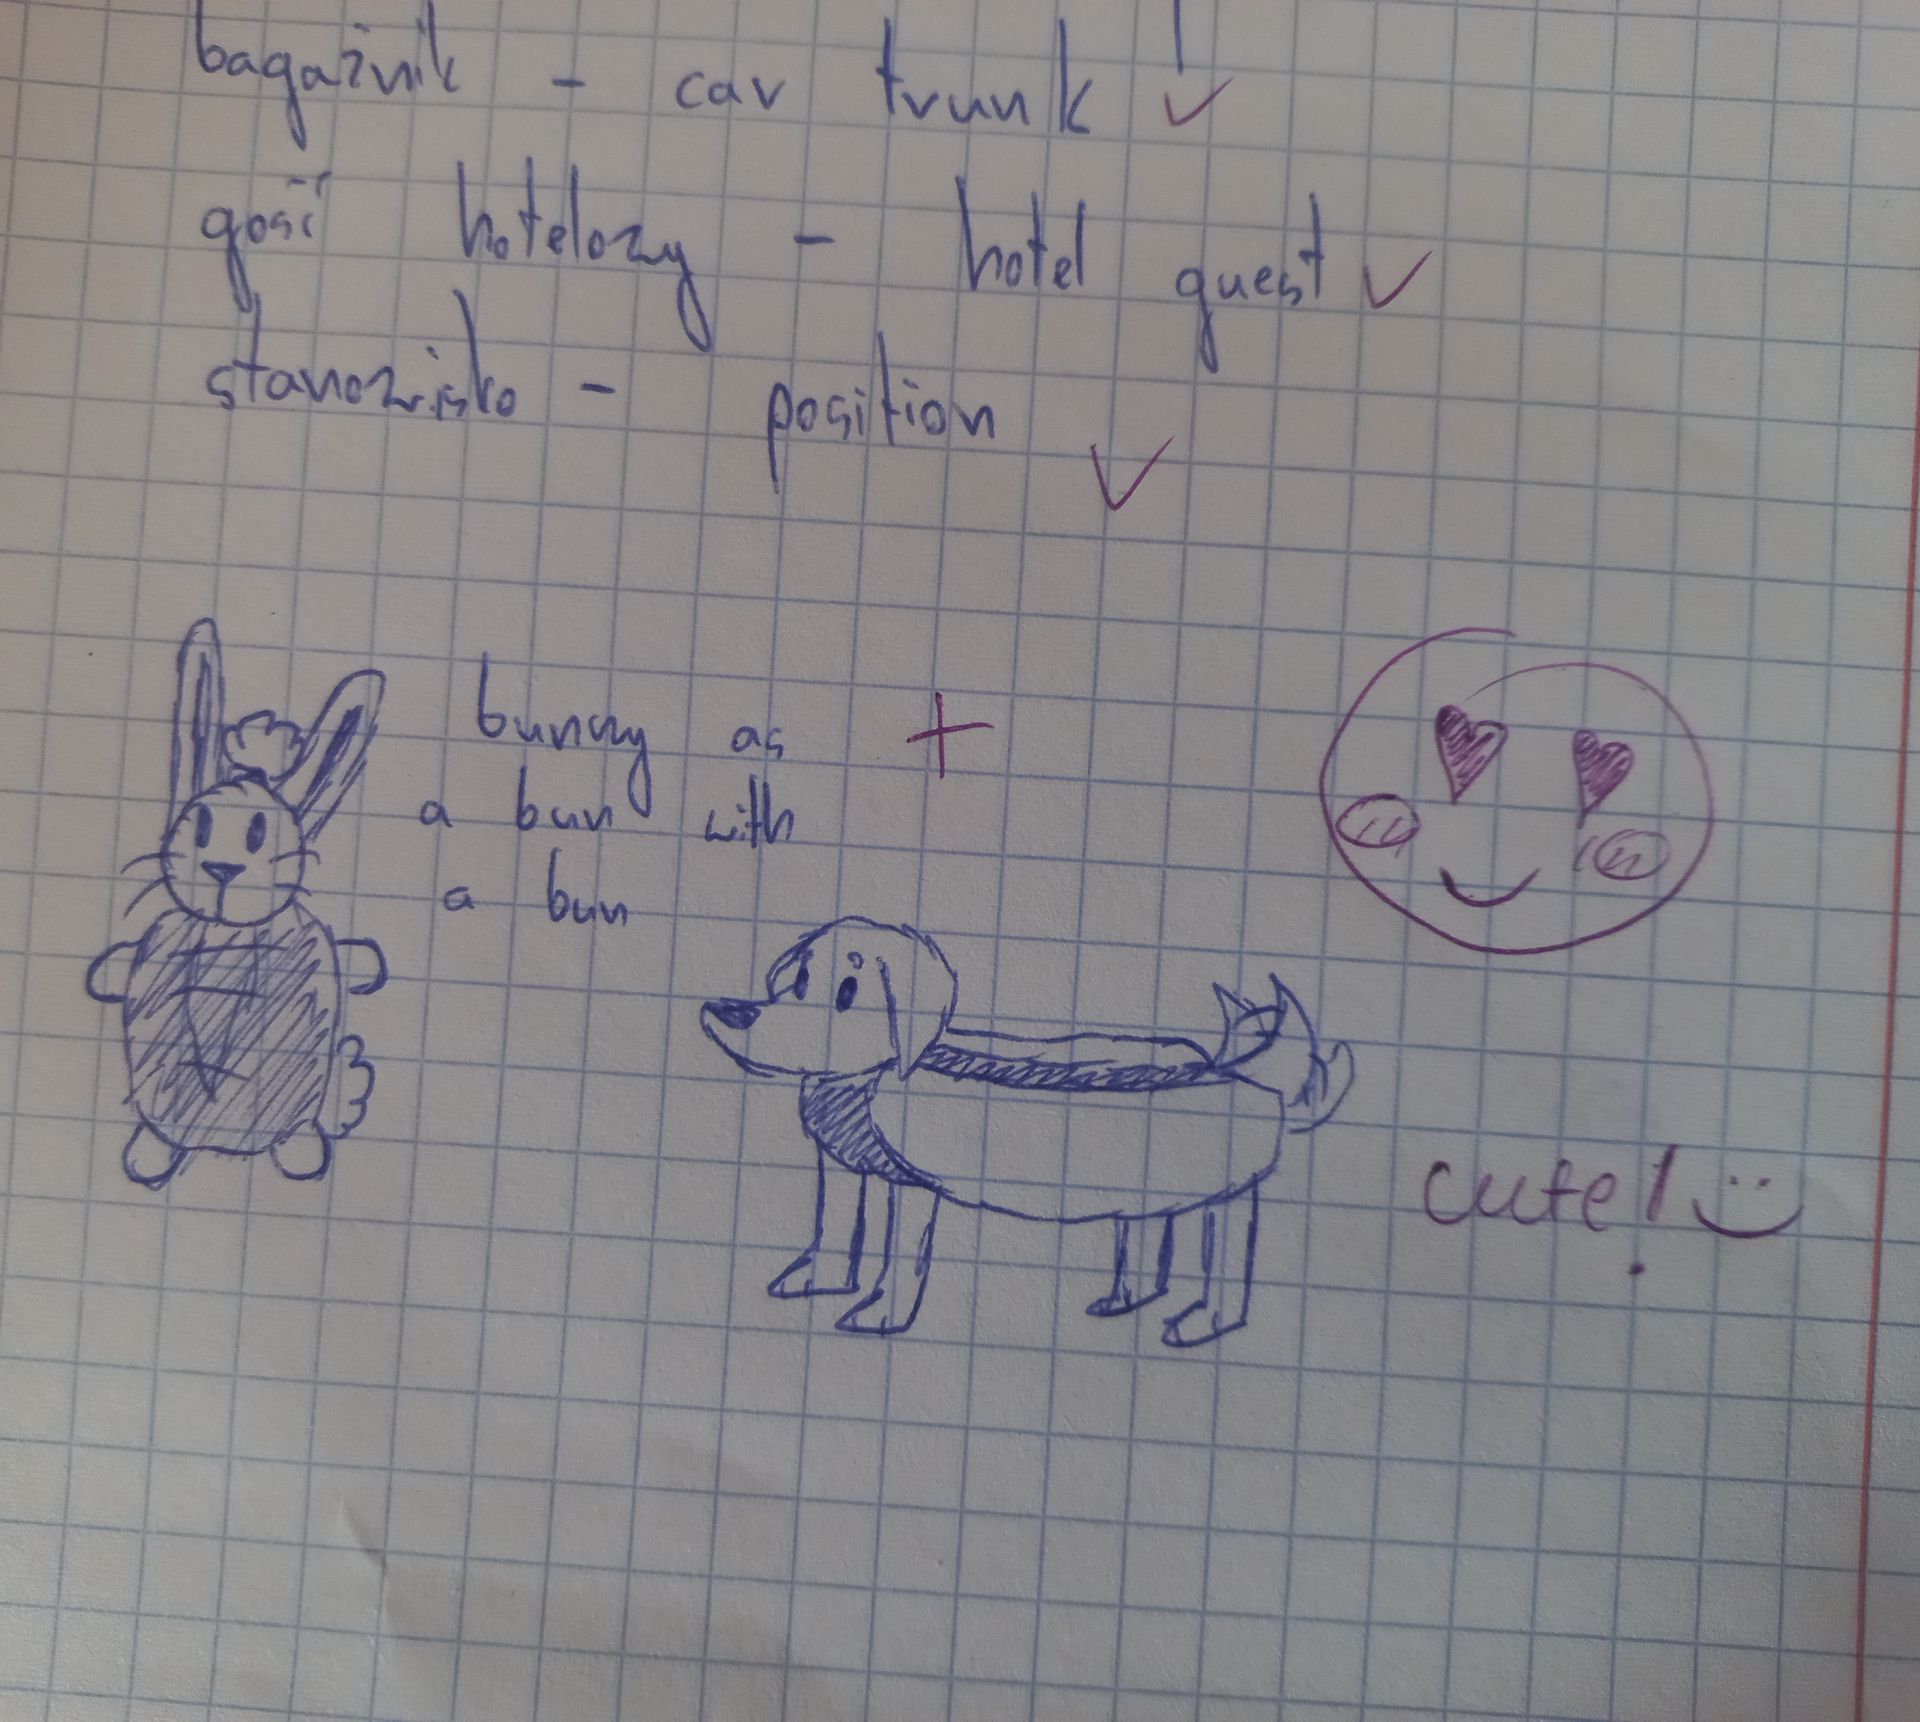 bagażnik - car trunk
gość hotelowy - hotel guest
stanowisko - position
bunny as
a bun with
a bun
cute!